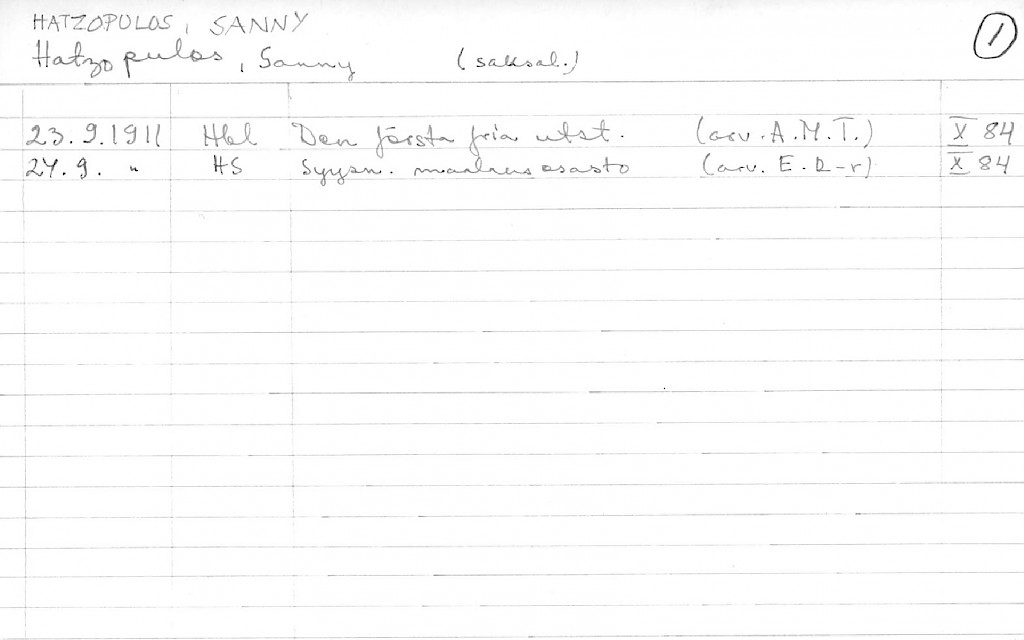 HATZOPULOS, SANNY
Hatzopulos, Sanny (saksal.) 1
23.9.1911 Hbl Den första fria utst. (arv. A.M.T.) X 84
27.9. " HS Syysn. maalausosasto (arv. E. R-r) X 84